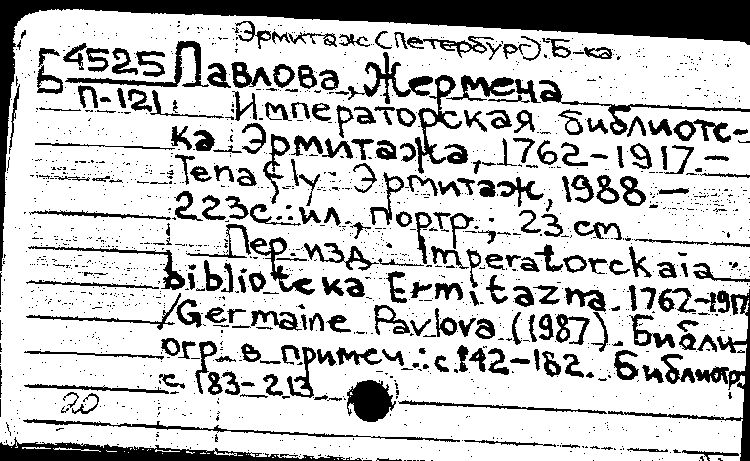 Эрмитаж (Петербург). Б-ка.
Б 4525 Павлова, Жермена
П-121
Императорская библиоте-
ка Эрмитажа, 1762-1917.-
Tenafly: Эрмитаж, 1988.-
223с.:ил., портр.; 23 cm
Пер. изд.: Imperatorckaia
biblioteka Ermitazna. 1762-1917
/Germaine Pavlova (1987). Библи-
огр. в примеч.: с.142-182. Библиогр.
с. 183-213
20